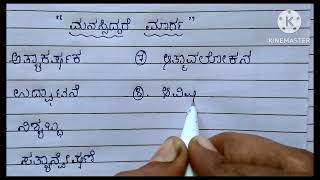 "ಮನಸ್ಸಿದ್ದರೆ ಮಾರ್ಗ"
ಅತ್ಯಾಕರ್ಷಕ ⑦ ಆತ್ಮಾವಲೋಕನ
ಉದ್ಘಾಟನೆ ⑧.
ಸತ್ಯಾನ್ವೇಷಣೆ
KINEMASTER